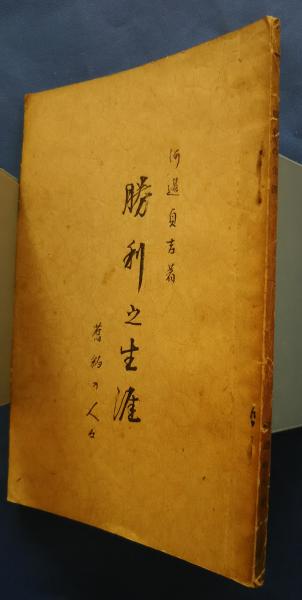 河邊貞吉著
勝利之生涯
舊約の人々